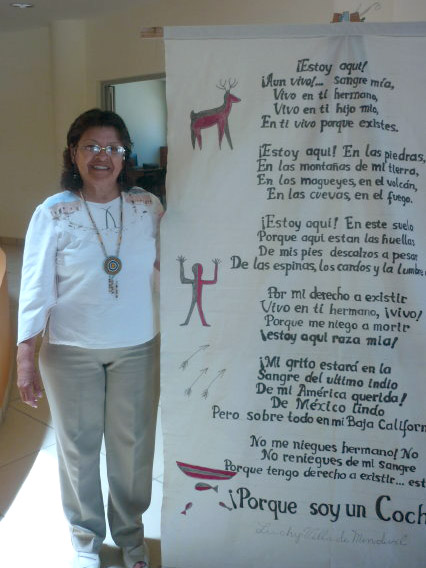 ¡Estoy aquí!
¡Aun vivo!... sangre mía,
Vivo en ti hermano,
Vivo en ti hijo mío,
En ti vivo porque existes.
¡Estoy aquí! En las piedras,
En las montañas de mi tierra,
En los magueyes, en el volcán,
En las cuevas, en el fuego.
¡Estoy aquí! En este suelo
Porque aquí estan las huellas
De mis pies descalzos a pesar
De las espinas, los cardos y la lumbre
Por mi derecho a existir
Vivo en ti hermano, ¡vivo!
Porque me niego a morir
¡estoy aquí raza mía!
¡Mi grito estará en la
Sangre del ultimo indio
De mi América querida!
De México lindo
Pero sobre todo en mi Baja Californ
No me niegues hermano! No
No reniegues de mi sangre
Porque tengo derecho a existir... est
¡Porque soy un Coch